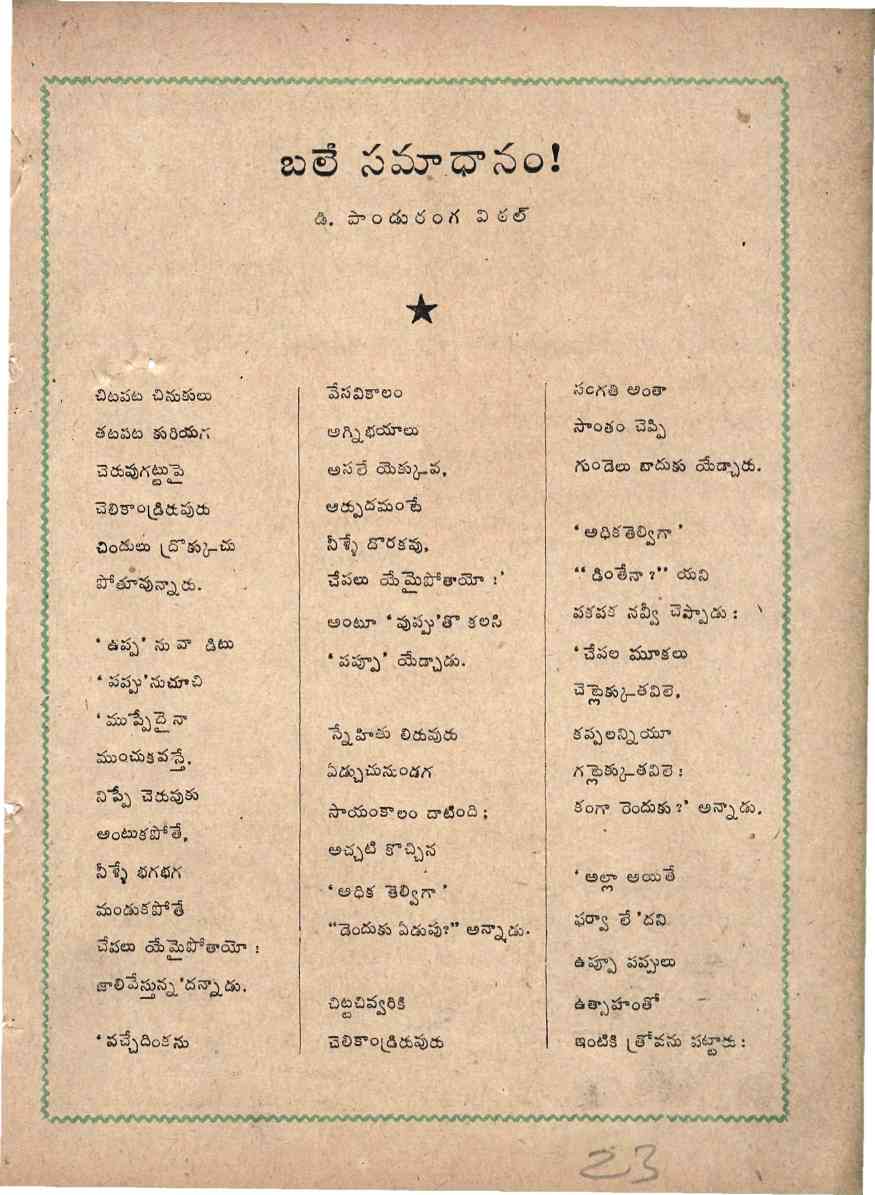 బలే సమాధానం!
డి. పాండురంగ విఠల్
చిటపట చినుకులు
తటపట కురియగ
చెరువుగట్టుపై
చెలికాండ్రిరుపురు
చిందులు ద్రొక్కుచు
పోతూవున్నారు.
‘ఉప్ప’ ను వా డిటు
‘పప్పు’నుచూచి
‘ముప్పేదైనా
ముంచుకవస్తే,
నిప్పే చెరువుకు
అంటుకపోతే,
నీళ్ళే భగభగ
మండుకపోతే
చేపలు యేమైపోతాయో :
జాలివేస్తున్న’దన్నాడు.
‘వచ్చేదింకను
వేసవికాలం
అగ్నిభయాలు
అసలే యెక్కువ,
ఆర్పుదమంటే
నీళ్ళే దొరకవు,
చేపలు యేమైపోతాయో :’
అంటూ ‘వుప్పు’తొ కలసి
‘పప్పూ’ యేడ్చాడు.
స్నేహితు లిరువురు
ఏడ్చుచునుండగ
సాయంకాలం దాటింది;
అచ్చటి కొచ్చిన
‘అధిక తెల్విగా’
“డెందుకు ఏడుపు?” అన్నాడు.
చిట్టచివ్వరికి
చెలికాండ్రిరువురు
సంగతి అంతా
సాంతం చెప్పి
గుండెలు బాదుకు యేడ్చారు.
‘అధికతెల్విగా’
“డింతేనా ?” యని
పకపక నవ్వీ చెప్పాడు :
‘చేపల మూకలు
చెట్లెక్కుతవిలె,
కప్పలన్నియూ
గట్లెక్కుతవిలె :
కంగా రెందుకు ?’ అన్నాడు.
‘అల్లా అయితే
ఫర్వా లే’దని
ఉప్పూ పప్పులు
ఉత్సాహంతో
ఇంటికి త్రోవను పట్టారు :
23